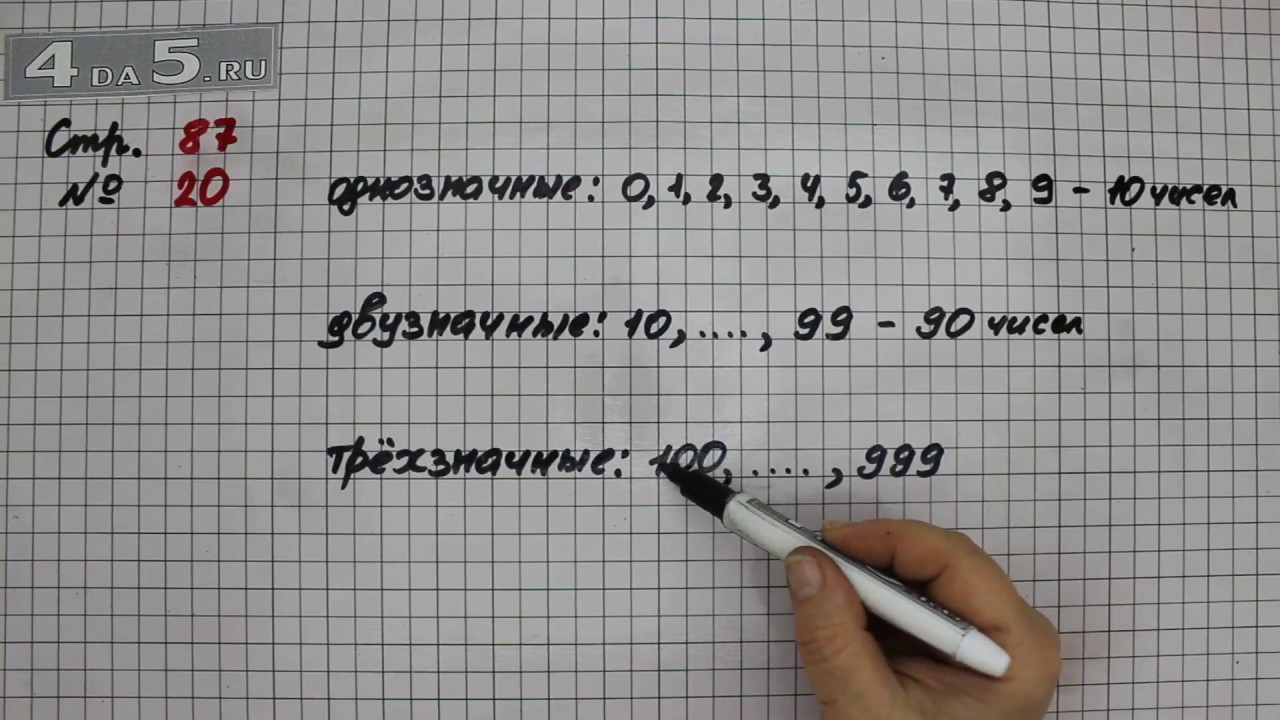 4DA5.RU
Стр. 87
№ 20
однозначные: 0, 1, 2, 3, 4, 5, 6, 7, 8, 9 - 10 чисел
двузначные: 10, ...., 99 - 90 чисел
трёхзначные: 100, ...., 999